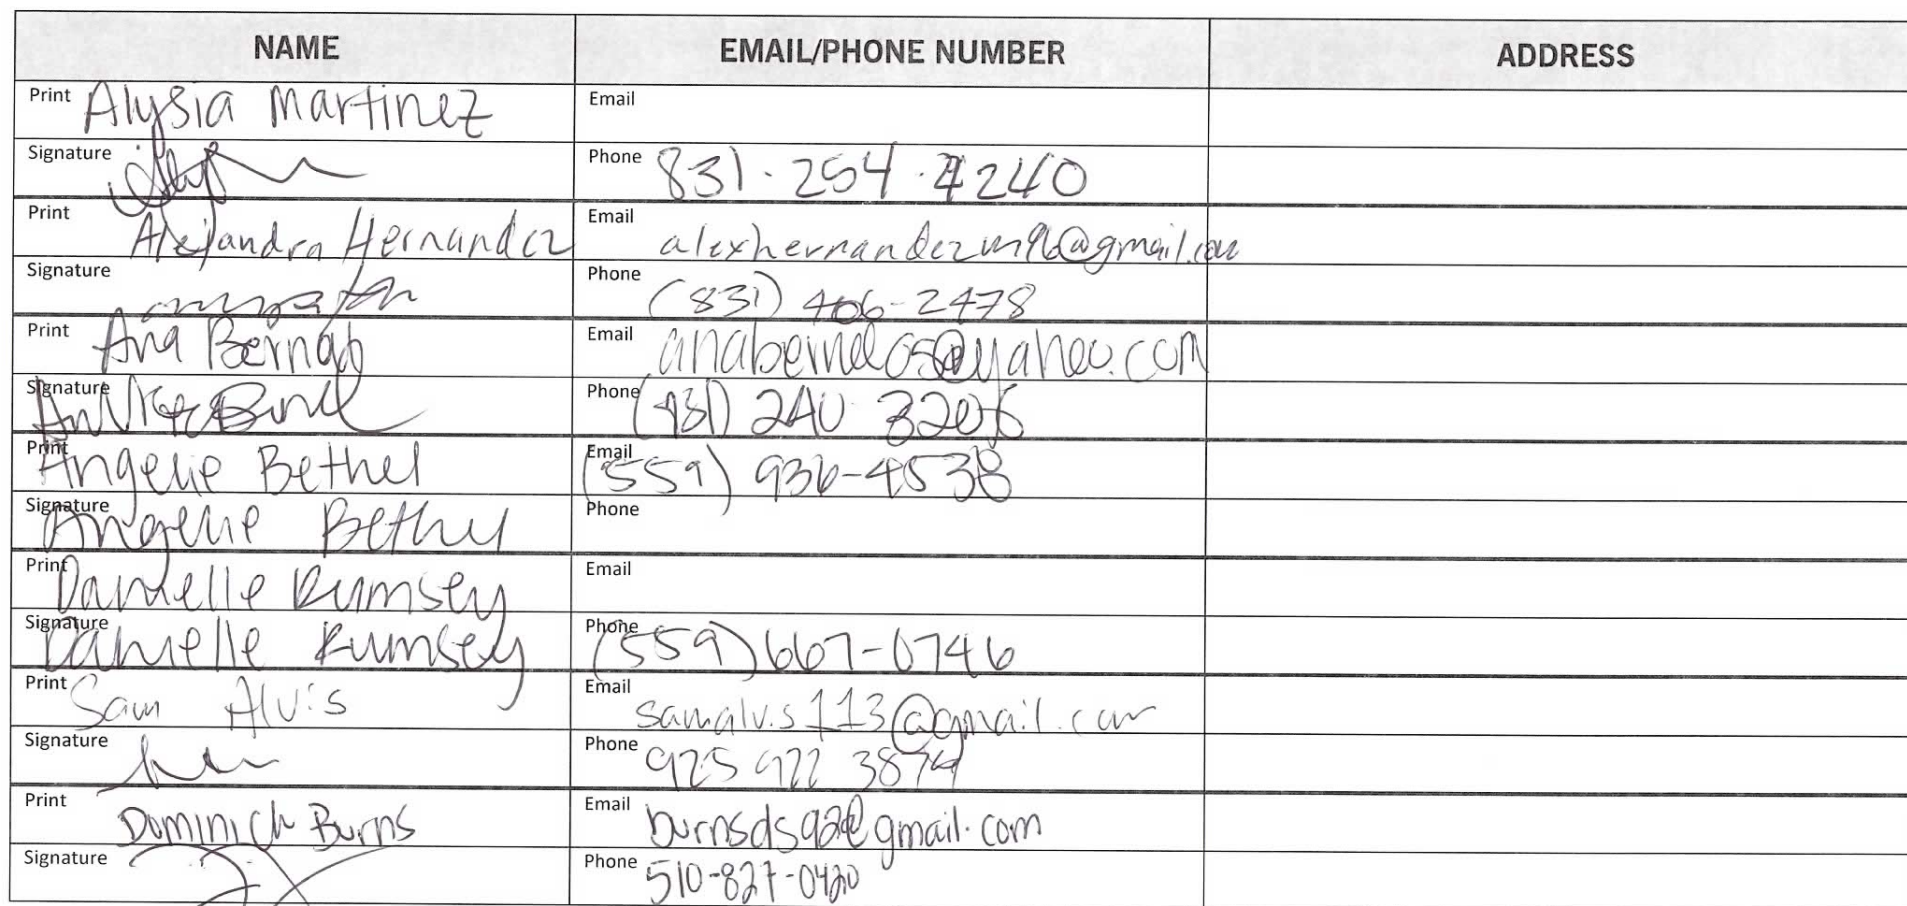 NAME EMAIL/PHONE NUMBER ADDRESS
Print Alysia Martinez Email
Signature Phone 831.254.4240
Print Alejandra Hernandez Email alexhernandezm96@gmail.com
Signature Phone (831) 406-2478
Print Ana Bernab Email
Signature Phone (831) 240 3206
Print Angelie Bethel Email (559) 936-4538
Signature Angelie Bethel Phone
Print Danielle Rumsey Email
Signature Danielle Rumsey Phone (559) 667-0746
Print Sam Alvis Email samalvis113@gmail.com
Signature Phone 925 922 3874
Print Dominick Burns Email burnsds92@gmail.com
Signature Phone 510-827-0420